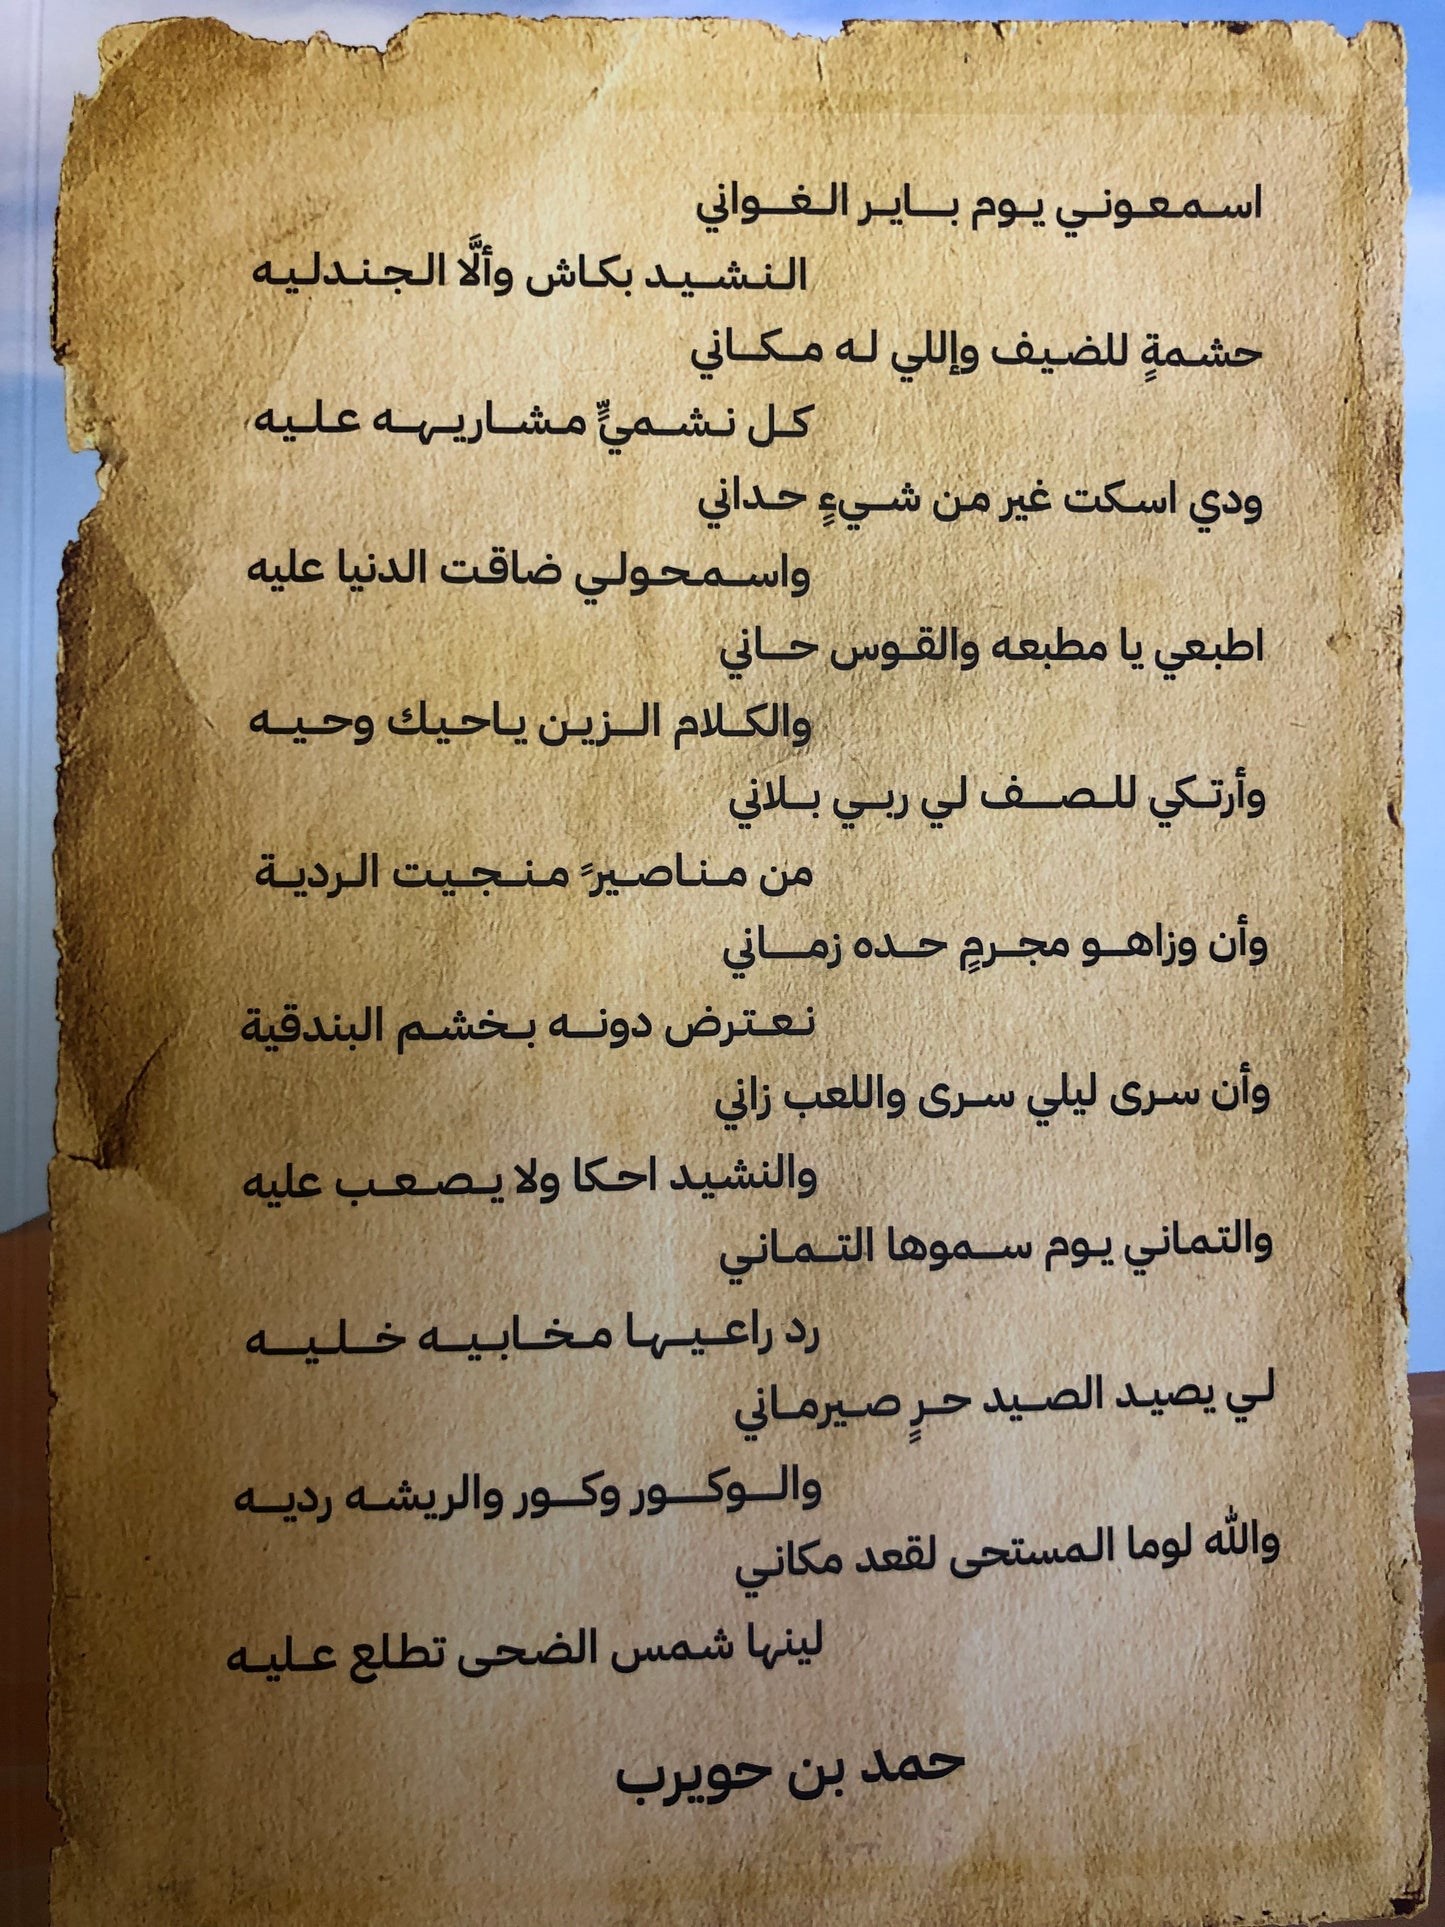 اسمعوني يوم باير الغواني
النشيد بكاش وألَّا الجندليه
حشمةٍ للضيف وإللي له مكاني
كل نشميٍّ مشاريهه عليه
ودي اسكت غير من شيءٍ حداني
واسمحولي ضاقت الدنيا عليه
اطبعي يا مطبعه والقوس حاني
والكلام الزين ياحيك وحيه
وأرتكي للصف لي ربي بلاني
من مناصيرً منجيت الردية
وأن وزاهو مجرمٍ حده زماني
نعترض دونه بخشم البندقية
وأن سرى ليلي سرى واللعب زاني
والنشيد احكا ولا يصعب عليه
والتماني يوم سموها التماني
رد راعيها مخابيه خليه
لي يصيد الصيد حرٍ صيرماني
والوكور وكور والريشه رديه
والله لوما المستحى لقعد مكاني
لينها شمس الضحى تطلع عليه
حمد بن حويرب